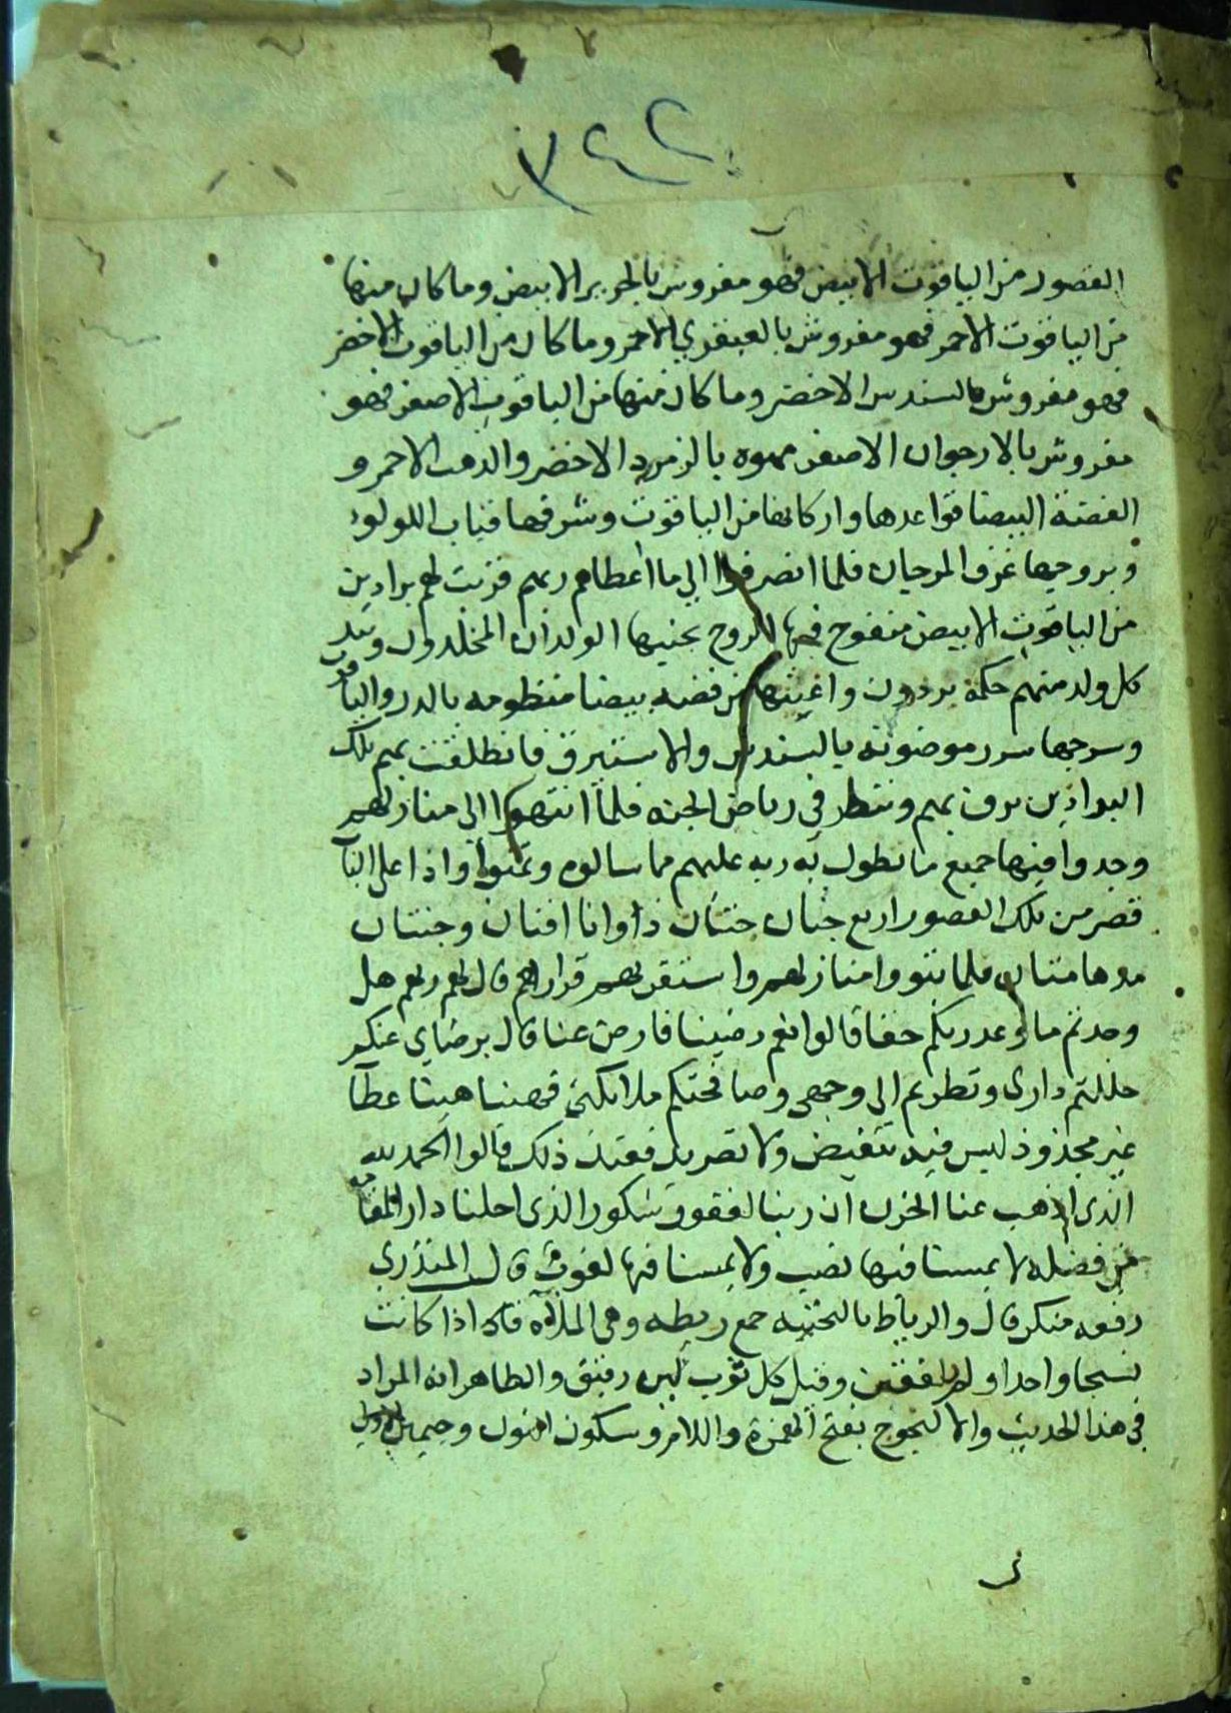 ٣٤٢
القصور من الياقوت الابيض فهو مفروش بالحرير الابيض وما كان منها
من الياقوت الاحمر فهو مفروش بالعبقري الاحمر وما كان من الياقوت الاخضر
فهو مفروش بالسندس الاخضر وما كان منها من الياقوت الاصفر فهو
مفروش بالارجوان الاصفر مموه بالزمرد الاخضر والذهب الاحمر و
الفضة البيضا قواعدها واركانها من الياقوت وشرفها قباب اللولو
وبروجها غرف المرجان فلما انصرفوا الي ما اعطاهم ربهم قربت لهم براذين
من الياقوت الابيض منفوخ فيها الروح بجنبها الولدان المخلدون وبيد
كل ولد منهم حكمة برذون واعنتها من فضه بيضا منظومه بالدر والياقوت
وسرجها سرر موضونه بالسندس والاستبرق فانطلقت بهم تلك
البراذين تزف بهم وتنظر في رياض الجنه فلما انتهوا الي منازلهم
وجدوا فيها جميع ما تطول به ربه عليهم مما سالوه وتمنوا واذا علي الباب
قصر من تلك القصور اربع جنان جنتان ذاواتا افنان وجنتان
مدهامتان فلما تبووا منازلهم واستقر بهم قرارهم قال لهم ربهم هل
وجدتم ما وعد ربكم حقا قالوا نعم رضينا فارض عنا قال برضاي عنكم
حللتم داري ونظرتم الي وجهي وصافحتكم ملايكتي فهنيا هنيا عطآ
غير مجذوذ ليس فيه تنغيض ولا تصريد فعند ذلك قالوا الحمد لله
الذي اذهب عنا الحزن ان ربنا لغفور شكور الذي احلنا دار المقامه
من فضله لا يمسنا فيها نصب ولا يمسنا فيها لغوب قال المنذري
رفعه منكر قال والرياط بالتحتيه جمع ريطه وهي الملاه فان اذا كانت
نسجا واحدا ولم بلفقتين وقيل كل ثوب لين رقيق والظاهر انه المراد
في هذا الحديث والالنجوج بفتح الهمزة واللام وسكون النون وجيمين الاولي